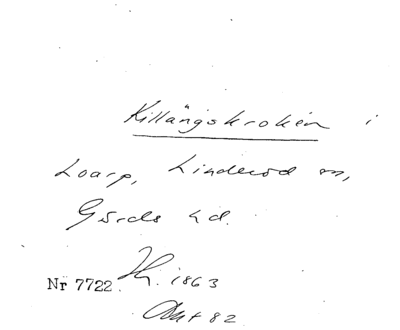 Killängskroken i
Loarp, Linderöd sn,
Gärds hd.
Nr 7722. 1863
Akt 82